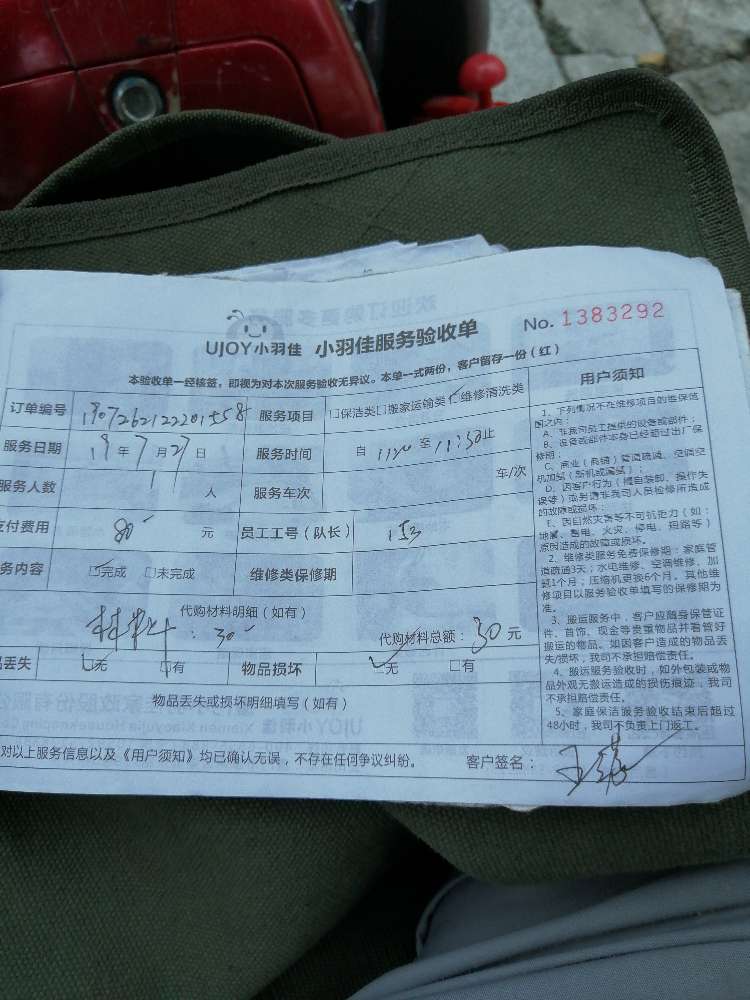 UJOY小羽佳 小羽佳服务验收单 No. 1383292
本验收单一经核签，即视为对本次服务验收无异议。本单一式两份，客户留存一份（红）
订单编号 服务项目 □保洁类□搬家运输类□维修清洗类
服务日期 19年7月27日 服务时间 自 1120 至 11:50止
服务人数 1 人 服务车次 车/次
支付费用 80 元 员工工号（队长）
务内容 □完成 □未完成 维修类保修期
代购材料明细（如有）
材料: 30 代购材料总额：30元
品丢失 □无 □有 物品损坏 □无 □有
物品丢失或损坏明细填写（如有）
对以上服务信息以及《用户须知》均已确认无误，不存在任何争议纠纷。 客户签名：
用户须知
1、下列情况不在维修项目的维保范
围之内：
A、非我司员工提供的设备或部件；
B、设备或部件本身已经超过出厂保
修期；
C、商业（商铺）管道疏通、空调空
机加氟（新机或漏氟）；
D、因客户行为（擅自装卸、操作失
误等）或另请非我司人员检修所造成
的故障或损坏；
E、因自然灾害等不可抗拒力（如：
地震、雷电、火灾、停电、短路等）
原因造成的故障或损坏。
2、维修类服务免费保修期：家庭管
道疏通3天；水电维修、空调维修、加
氟1个月；压缩机更换6个月。其他维
修项目以服务验收单填写的保修期为
准。
3、搬运服务中，客户应随身保管证
件、首饰、现金等贵重物品并看管好
搬运的物品。如因客户造成的物品丢
失/损坏，我司不承担赔偿责任。
4、搬运服务验收时，如外包装或物
品外观无搬运造成的损伤痕迹，我司
不承担赔偿责任。
5、家庭保洁服务验收结束后超过
48小时，我司不负责上门返工。